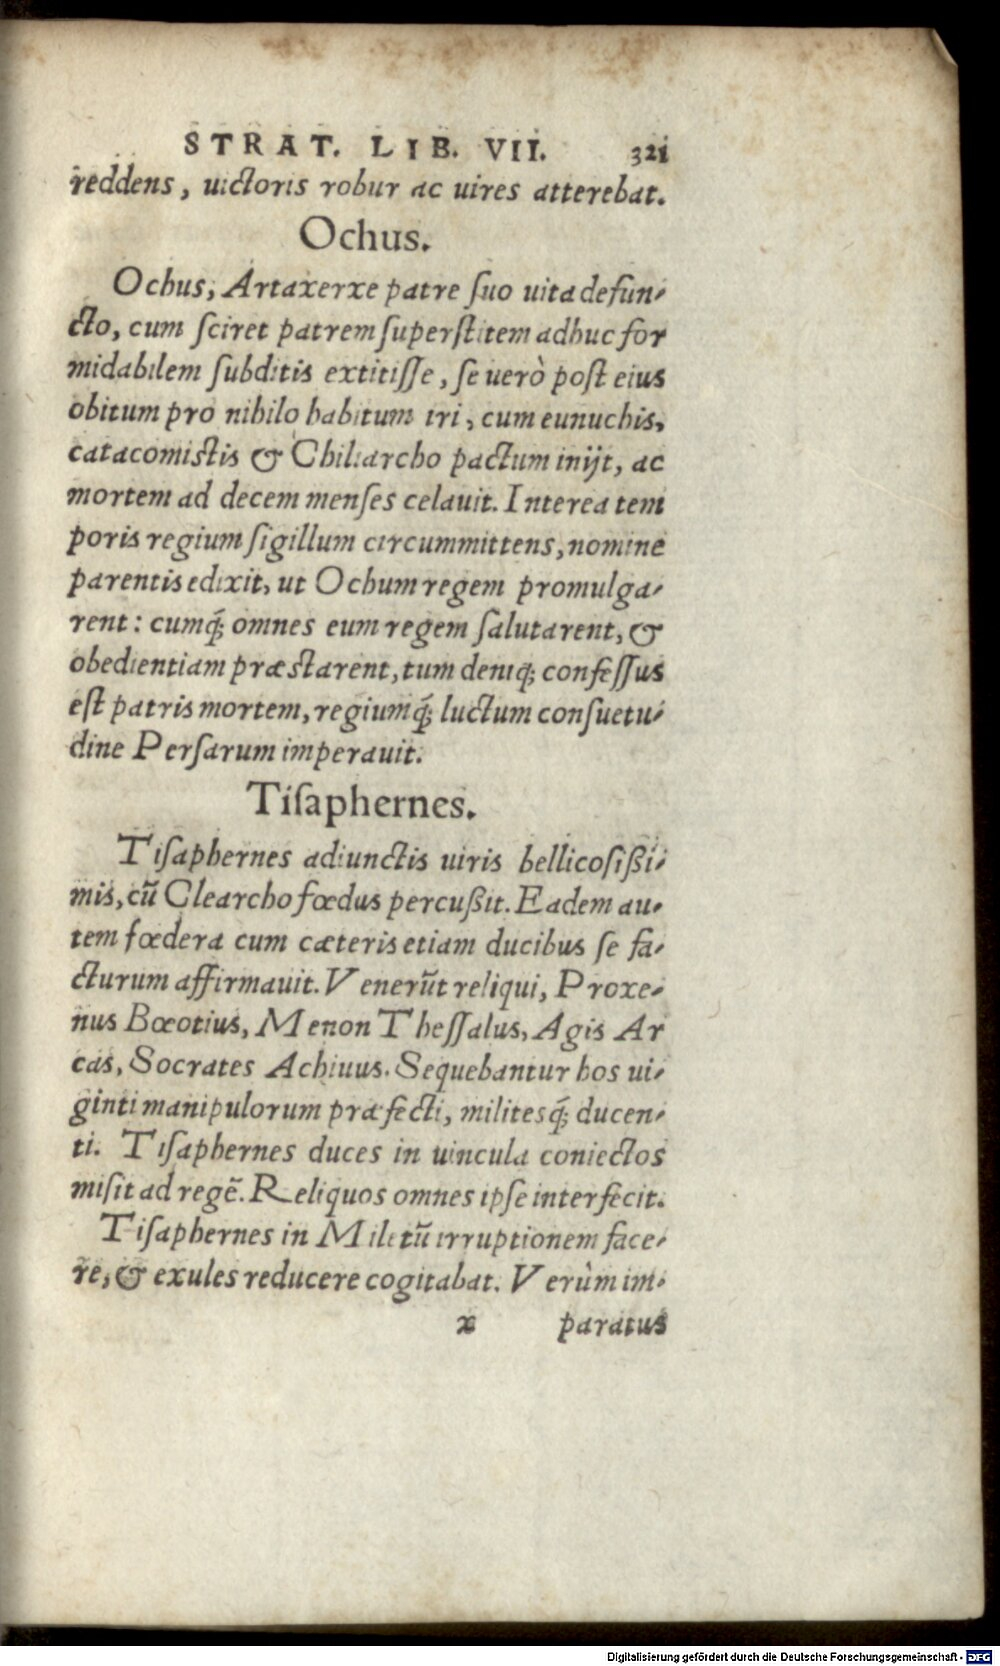 STRAT. LIB. VII. 321
reddens, uictoris robur ac uires atterebat.
Ochus.
Ochus, Artaxerxe patre ſuo uita defun-
cto, cum ſciret patrem ſuperſtitem adhuc for
midabilem ſubditis extitiſſe, ſe uerò poſt eius
obitum pro nihilo habitum iri, cum eunuchis,
catacomistis & Chiliarcho pactum inijt, ac
mortem ad decem menſes celauit. Interea tem
poris regium ſigillum circummittens, nomine
parentis edixit, ut Ochum regem promulga-
rent: cumq́; omnes eum regem ſalutarent, &
obedientiam præstarent, tum deniq; confeſſus
eſt patris mortem, regiumq́; luctum conſuetu-
dine Perſarum imperauit.
Tiſaphernes.
Tiſaphernes adiunctis uiris bellicoſißi-
mis, cū Clearcho fœdus percußit. Eadem au-
tem fœdera cum cæteris etiam ducibus ſe fa-
cturum affirmauit. Venerūt reliqui, Proxe-
nus Bœotius, Menon Theſſalus, Agis Ar
cas, Socrates Achiuus. Sequebantur hos ui-
ginti manipulorum præfecti, militesq́; ducen-
ti. Tiſaphernes duces in uincula coniectos
miſit ad regē. Reliquos omnes ipſe interfecit.
Tiſaphernes in Miletū irruptionem face-
re, & exules reducere cogitabat. Verùm im-
x paratus
Digitalisierung gefördert durch die Deutsche Forschungsgemeinschaft - DFG